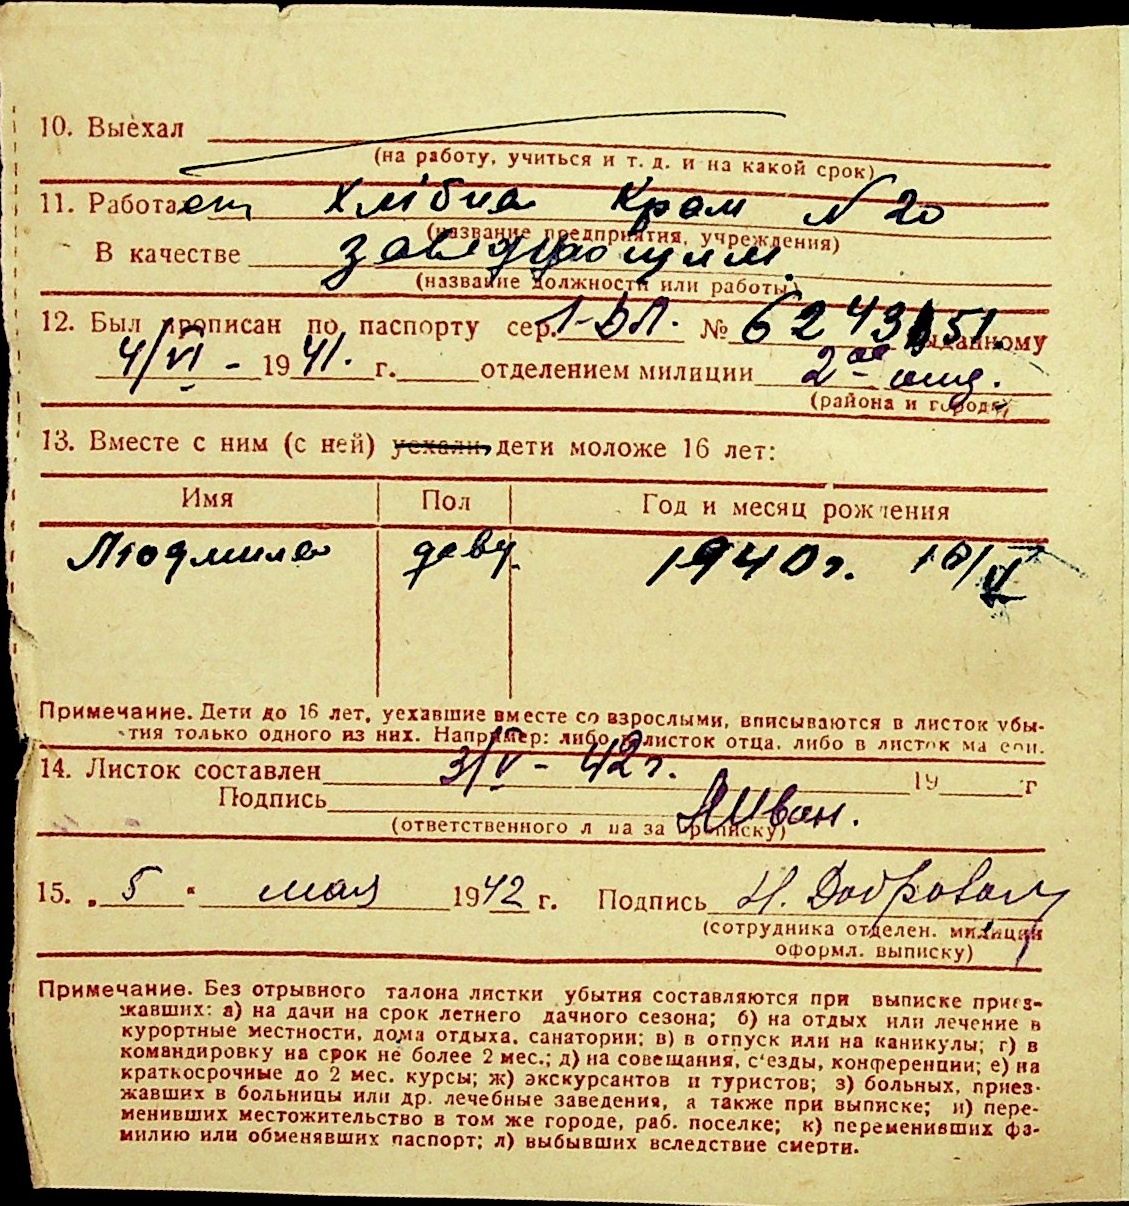 10. Выехал
(на работу, учиться и т. д. и на какой срок)
11. Работает Хлібна Крам N 20
(название предприятия, учреждения)
В качестве заведующим.
(название должности или работы)
12. Был прописан по паспорту сер. 1-БЛ. № 624351 выданному
4/VI - 1941. г. отделением милиции 2ое отд.
(района и города)
13. Вместе с ним (с ней) уехали, дети моложе 16 лет:
Имя Пол Год и месяц рождения
Людмила дев. 1940г. 18/V
Примечание. Дети до 16 лет, уехавшие вместе со взрослыми, вписываются в листок убы-
тия только одного из них. Например: либо в листок отца, либо в листок матери.
14. Листок составлен 3/V - 42г. 19 г
Подпись
(ответственного лица за прописку)
15. „ 5 " мая 1942 г. Подпись
(сотрудника отделен. милиции
оформл. выписку)
Примечание. Без отрывного талона листки убытия составляются при выписке приез-
жавших: а) на дачи на срок летнего дачного сезона; б) на отдых или лечение в
курортные местности, дома отдыха, санатории; в) в отпуск или на каникулы; г) в
командировку на срок не более 2 мес.; д) на совещания, с'езды, конференции; е) на
краткосрочные до 2 мес. курсы; ж) экскурсантов и туристов; з) больных, приез-
жавших в больницы или др. лечебные заведения, а также при выписке; и) пере-
менивших местожительство в том же городе, раб. поселке; к) переменивших фа-
милию или обменявших паспорт; л) выбывших вследствие смерти.